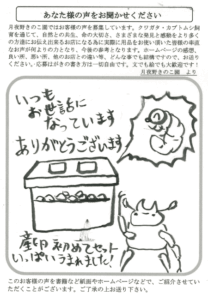 あなた様の声をお聞かせください
月夜野きのこ園ではお客様の声を募集しています。クワガタ・カブトムシ飼
育を通じて、自然との共生、命の大切さ、さまざまな発見と感動をより多く
の方達にお伝え出来るお店になる為に実際に用品をお使い頂いた皆様の率直
なお声が何よりの力となり、今後の参考となります。ホームページの感想、
良い所、悪い所、他のお店との違い等、どんな事でも結構ですので、お送り
ください。応募はがきの書き方は一切自由です。文でも絵でも大歓迎です！
月夜野きのこ園 より
いつも
お世話に
なっています
ありがとうございます
産卵初めてセット
いっぱいうまれました！
このお客様の声を書籍など紙面やホームページなどで、ご紹介させてい
ただくことがございます。ご了承の上お送り下さい。